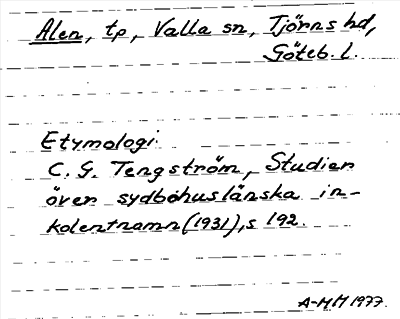 Alen, tp, Valla sn, Tjörns hd,
Göteb. l.
Etymologi.
C. G. Tengström, Studier
över sydbohuslänska in-
kolentnamn (1931), s 192.
A-MM 1977.